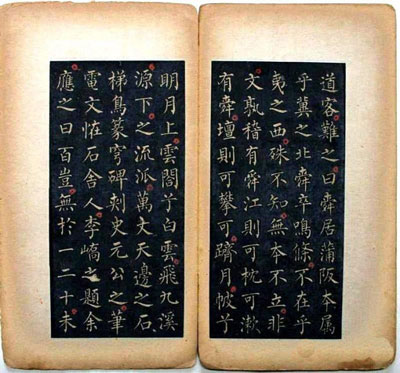 道客難之曰舜居蒲阪本属
乎冀之北舜卒鳴條不在乎
夷之西殊不知無本不立非
文孰稽有舜江則可枕可漱
有舜壇則可攀可躋月帔兮
明月上雲閣兮白雲飛九溪
源下之流派萬丈天邊之石
梯鳥篆穹碑刺史元公之筆
電文怪石舍人李嶠之題余
應之曰百豈無於一二十未